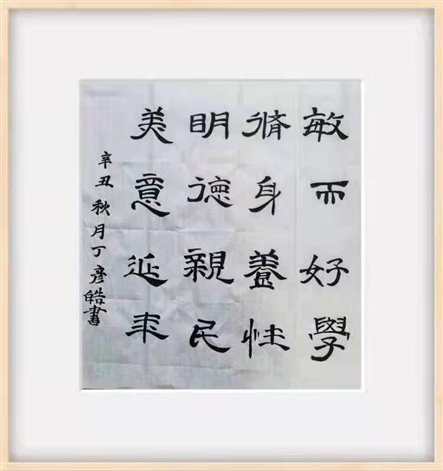 敏而好學
脩身養性
明德親民
美意延年
辛丑秋月丁彦皓書